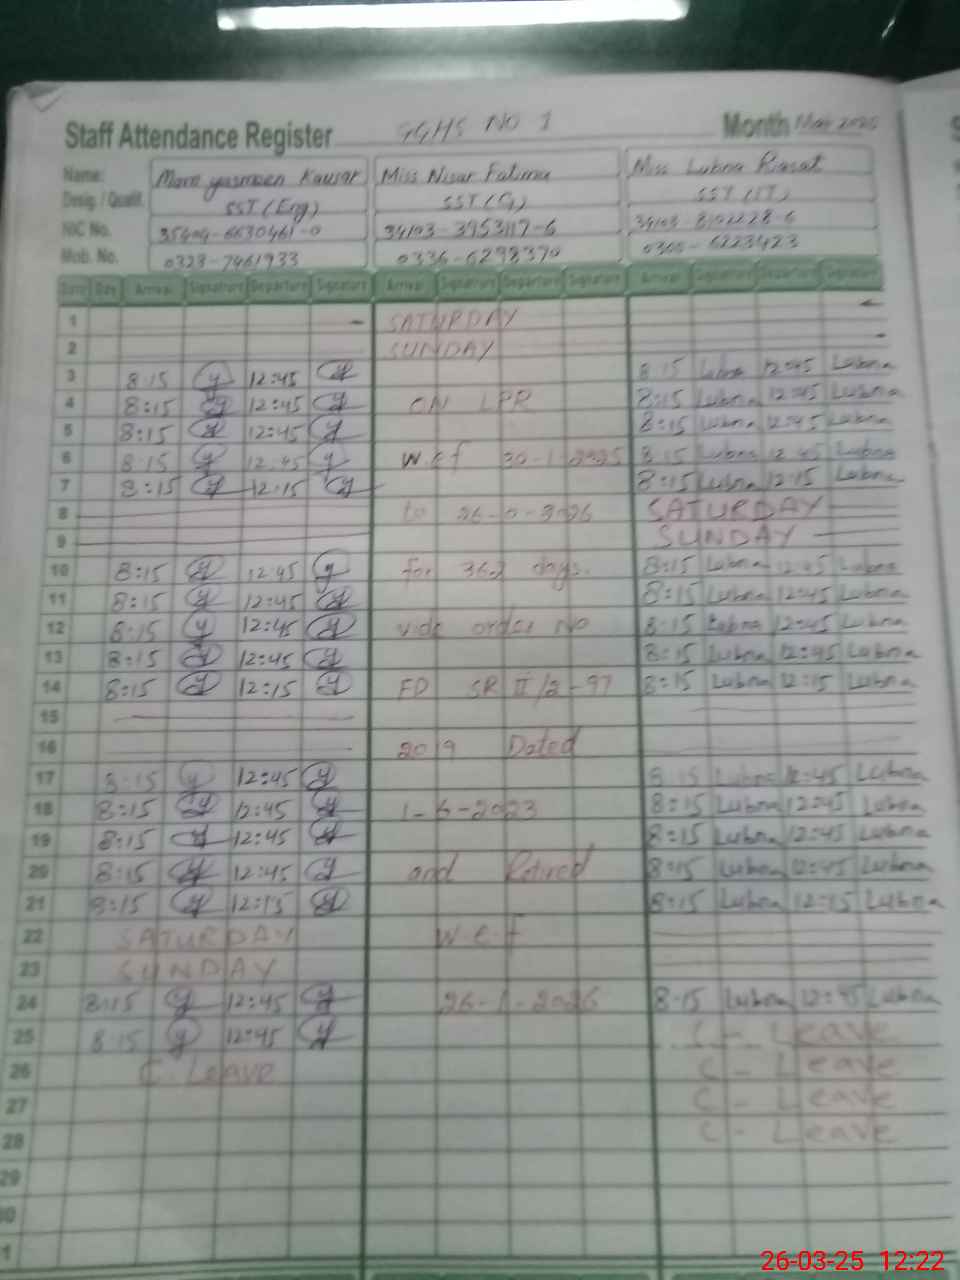 Staff Attendance Register GGHS NO 1 Month Mar 2025
Name: Yasmeen Kausar Miss Nisar Fatima Miss Lubna Riasat
Desig. / Qualif. SST (Eng) SST (G) SST (IT)
NIC No. 34103-3953117-6
Mob. No. 0323-7461933 0336-6298370 0300-6223423
Date Day Arrival Signature Departure Signature Arrival Signature Departure Signature Arrival Signature Departure Signature
1 SATURDAY
2 SUNDAY
3 8:15 y 12:45 y 8:15 Lubna 12:45 Lubna
4 8:15 y 12:45 y ON LPR 8:15 Lubna 12:45 Lubna
5 8:15 y 12:45 y 8:15 Lubna 12:45 Lubna
6 8:15 y 12:45 y w.e.f 8:15 Lubna 12:45 Lubna
7 8:15 y 12:15 y 8:15 Lubna 12:15 Lubna
8 to SATURDAY
9 SUNDAY
10 8:15 y 12:45 y for days. 8:15 Lubna 12:45 Lubna
11 8:15 y 12:45 y 8:15 Lubna 12:45 Lubna
12 8:15 y 12:45 y vide order No 8:15 Lubna 12:45 Lubna
13 8:15 y 12:45 y 8:15 Lubna 12:45 Lubna
14 8:15 y 12:15 y FD SR II/2-97 8:15 Lubna 12:15 Lubna
15
16 2019 Dated
17 8:15 y 12:45 y 8:15 Lubna 12:45 Lubna
18 8:15 y 12:45 y 8:15 Lubna 12:45 Lubna
19 8:15 y 12:45 y 8:15 Lubna 12:45 Lubna
20 8:15 y 12:45 y and Retired 8:15 Lubna 12:45 Lubna
21 8:15 y 12:15 y 8:15 Lubna 12:15 Lubna
22 SATURDAY w.e.f
23 SUNDAY
24 8:15 y 12:45 y 8:15 Lubna 12:45 Lubna
25 8:15 y 12:45 y C - Leave
26 C. Leave C - Leave
27 C - Leave
28 C - Leave
29
26-03-25 12:22